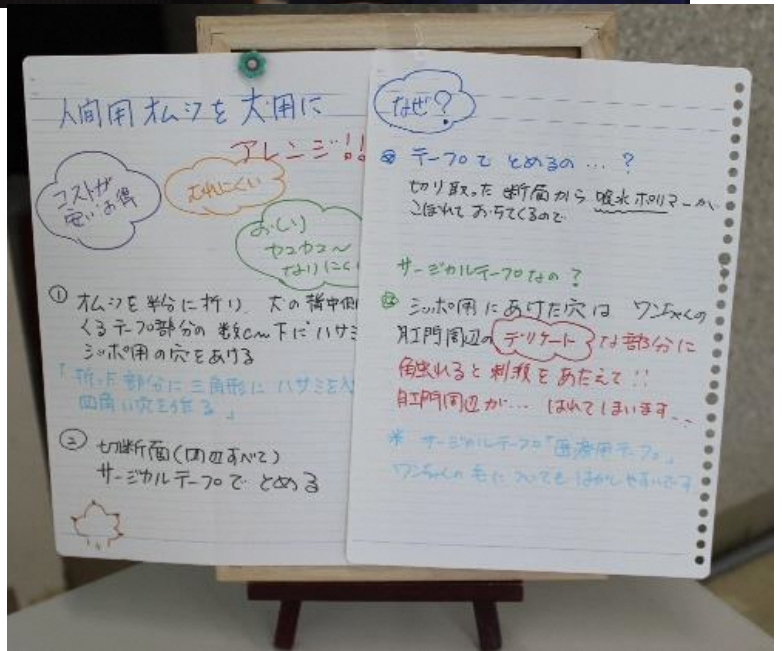 人間用オムツを犬用に
アレンジ!!
コストが
安いお得
むれにくい
おしり
カユカユ〜
なりにく
① オムツを半分に折り、犬の背中側
くるテープ部分の数cm下にハサミ
シッポ用の穴をあける
「折った部分に三角形にハサミを入
四角い穴を作る」
② 切断面(四辺すべて)
サージカルテープでとめる
なぜ?
テープでとめるの…?
切り取った断面から吸水ポリマーが
こぼれておちてくるので
サージカルテープなの?
シッポ用にあけた穴はワンちゃんの
肛門周辺のデリケートな部分に
触れると刺激をあたえて!!
肛門周辺が…はれてしまいます…
※ サージカルテープ「医療用テープ」
ワンちゃんの毛についてもはがしやすいです